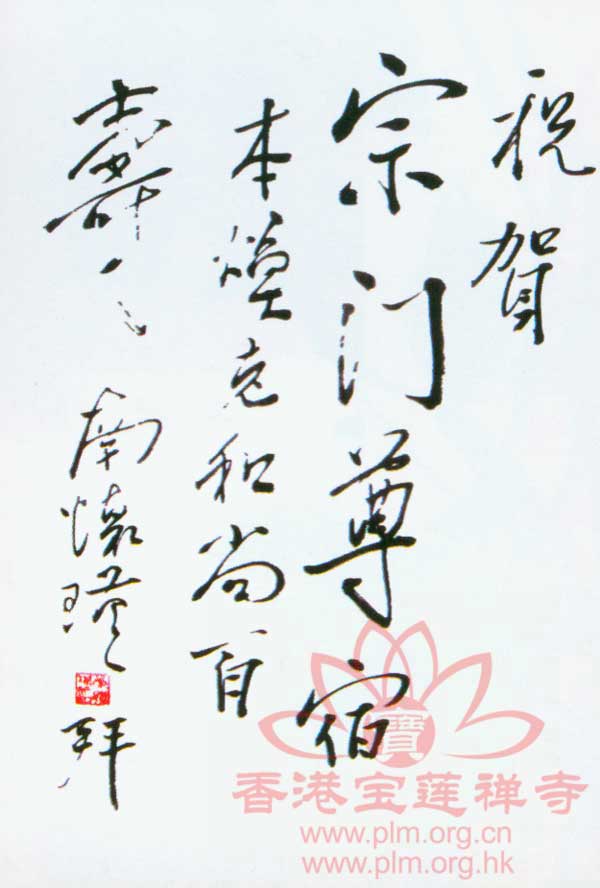 祝賀
宗门尊宿
本煥老和尚百
壽 南懷瑾 拜
寶
香港宝莲禅寺
www.plm.org.cn
www.plm.org.hk